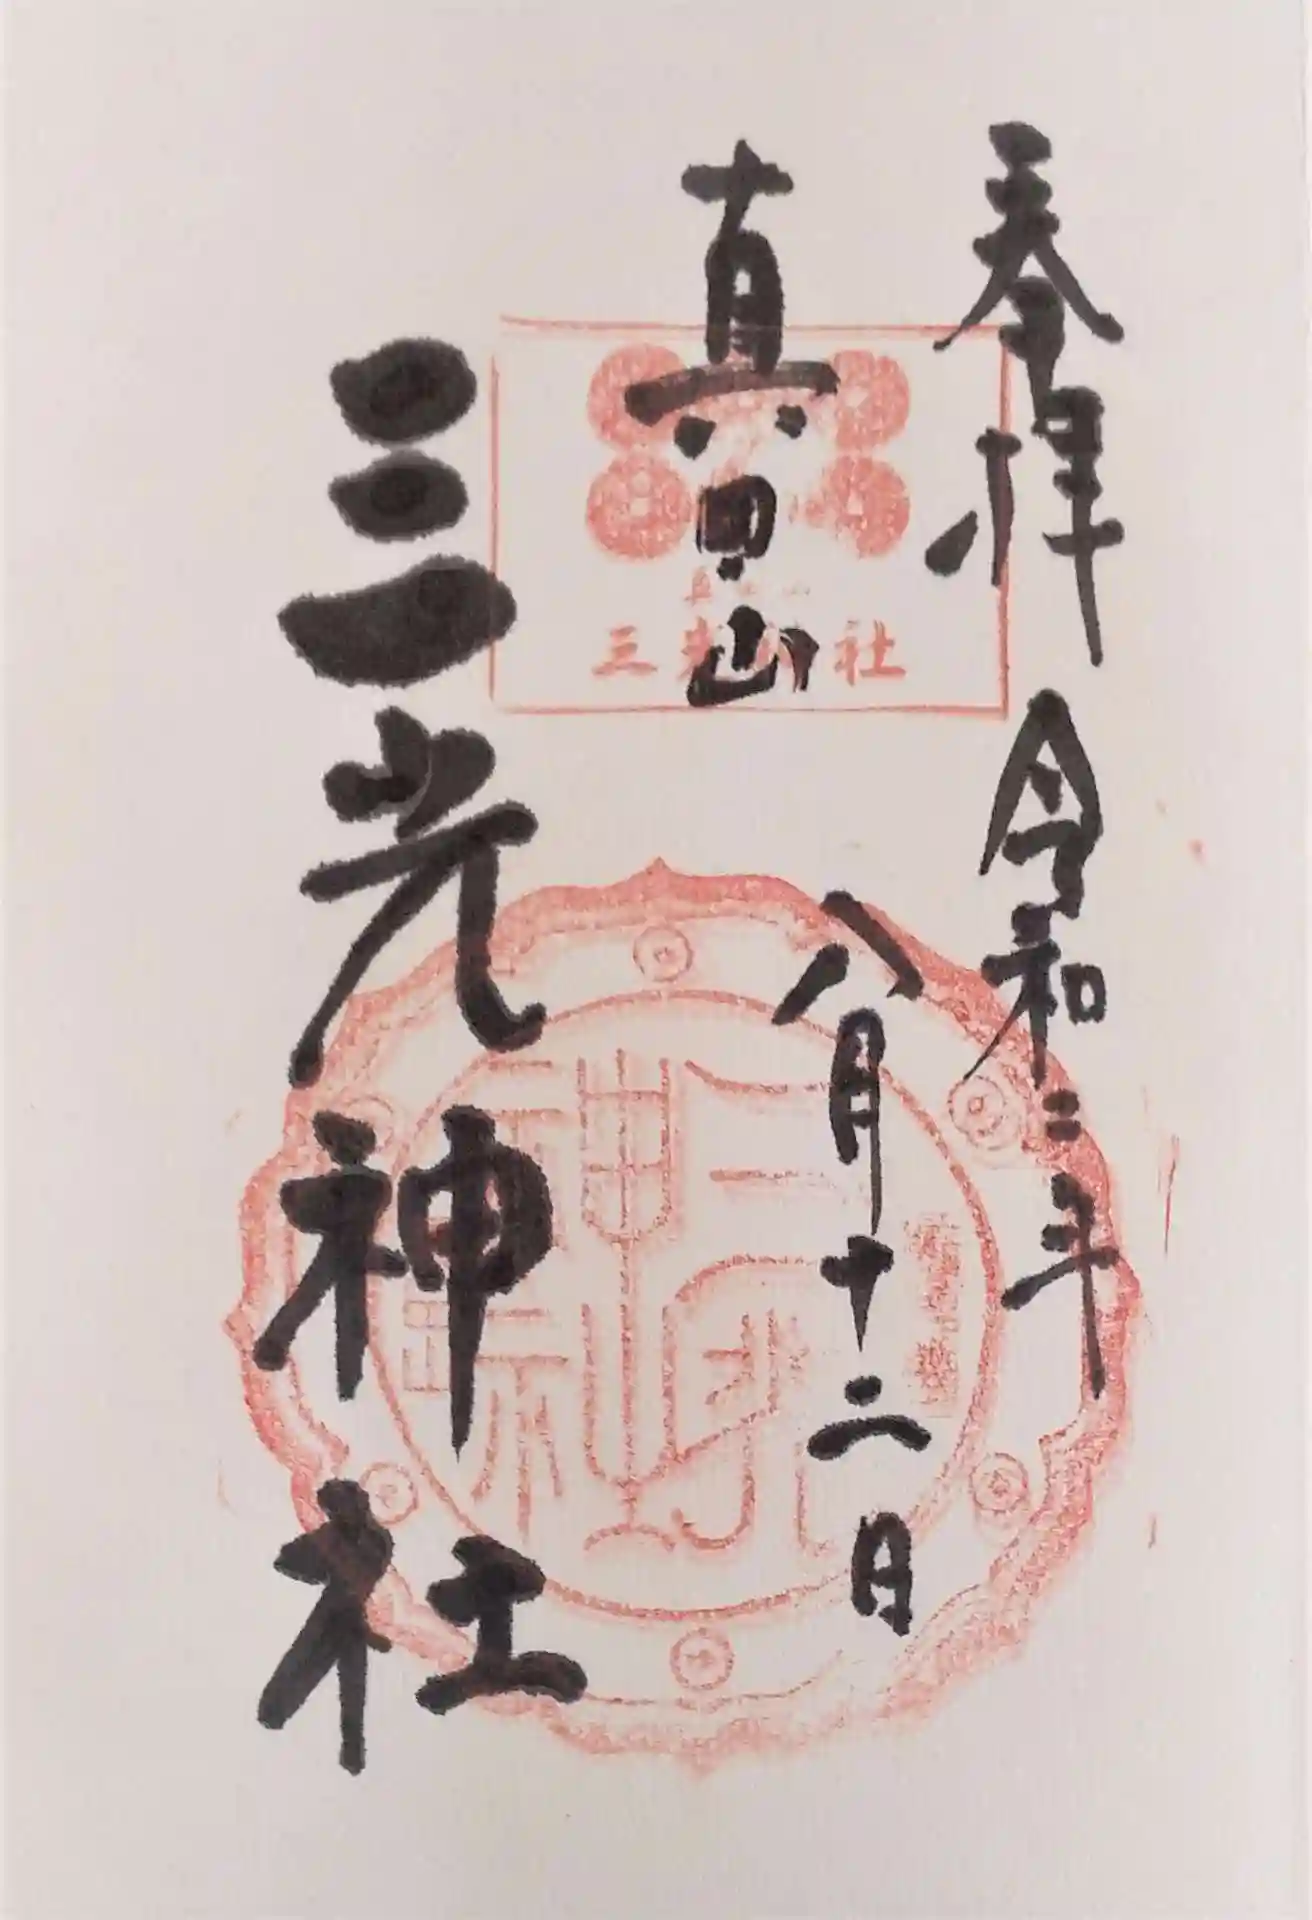 奉拝
令和二年
八月十二日
真田山
三光神社
三光神社